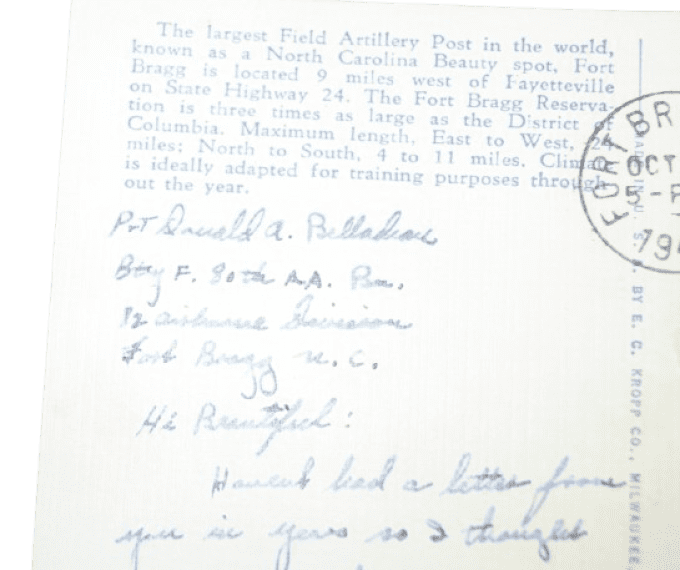 The largest Field Artillery Post in the world,
known as a North Carolina Beauty spot, Fort
Bragg is located 9 miles west of Fayetteville
on State Highway 24. The Fort Bragg Reserva-
tion is three times as large as the District of
Columbia. Maximum length, East to West, 24
miles; North to South, 4 to 11 miles. Climate
is ideally adapted for training purposes through-
out the year.
FORT BR
OCT
5 - P
194
Pvt Donald A.
Bty F. 80th A.A. Bn.
airborne Division
Fort Bragg N. C.
Hi Beautiful:
Havent had a letter from
you in years so I thought
MADE IN U. S. A. BY E. C. KROPP CO., MILWAUKEE,